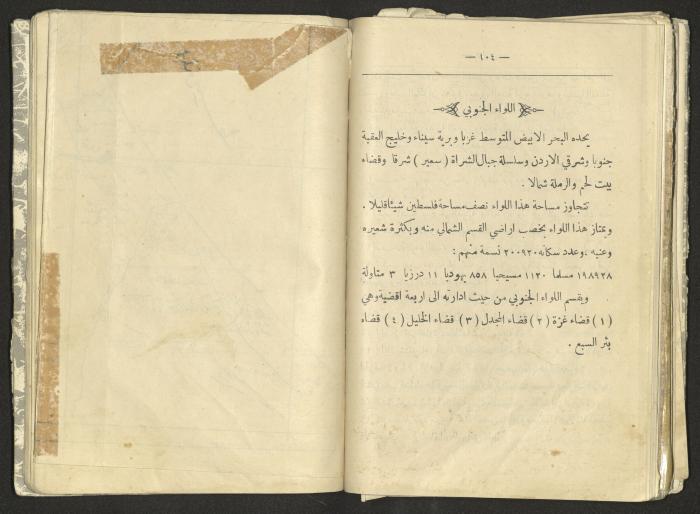 — ١٠٤ —
اللواء الجنوبي
يحده البحر الابيض المتوسط غربا وبرية سيناء وخليج العقبة
جنوبا وشرقي الاردن وسلسلة جبال الشراة ( سعير ) شرقا وقضاء
بيت لحم والرملة شمالا .
تتجاوز مساحة هذا اللواء نصف مساحة فلسطين شيئا قليلا .
ويمتاز هذا اللواء بخصب اراضي القسم الشمالي منه وبكثرة شعيره
وعنبه ، وعدد سكانه ٢٠٠٩٢٠ نسمة منهم :
١٩٨٩٢٨ مسلما ١١٢٠ مسيحيا ٨٥٨ يهوديا ١١ درزيا ٣ متاولة
ويقسم اللواء الجنوبي من حيث ادارته الى اربعة اقضية وهي
( ١ ) قضاء غزة ( ٢ ) قضاء المجدل ( ٣ ) قضاء الخليل ( ٤ ) قضاء
بئر السبع .